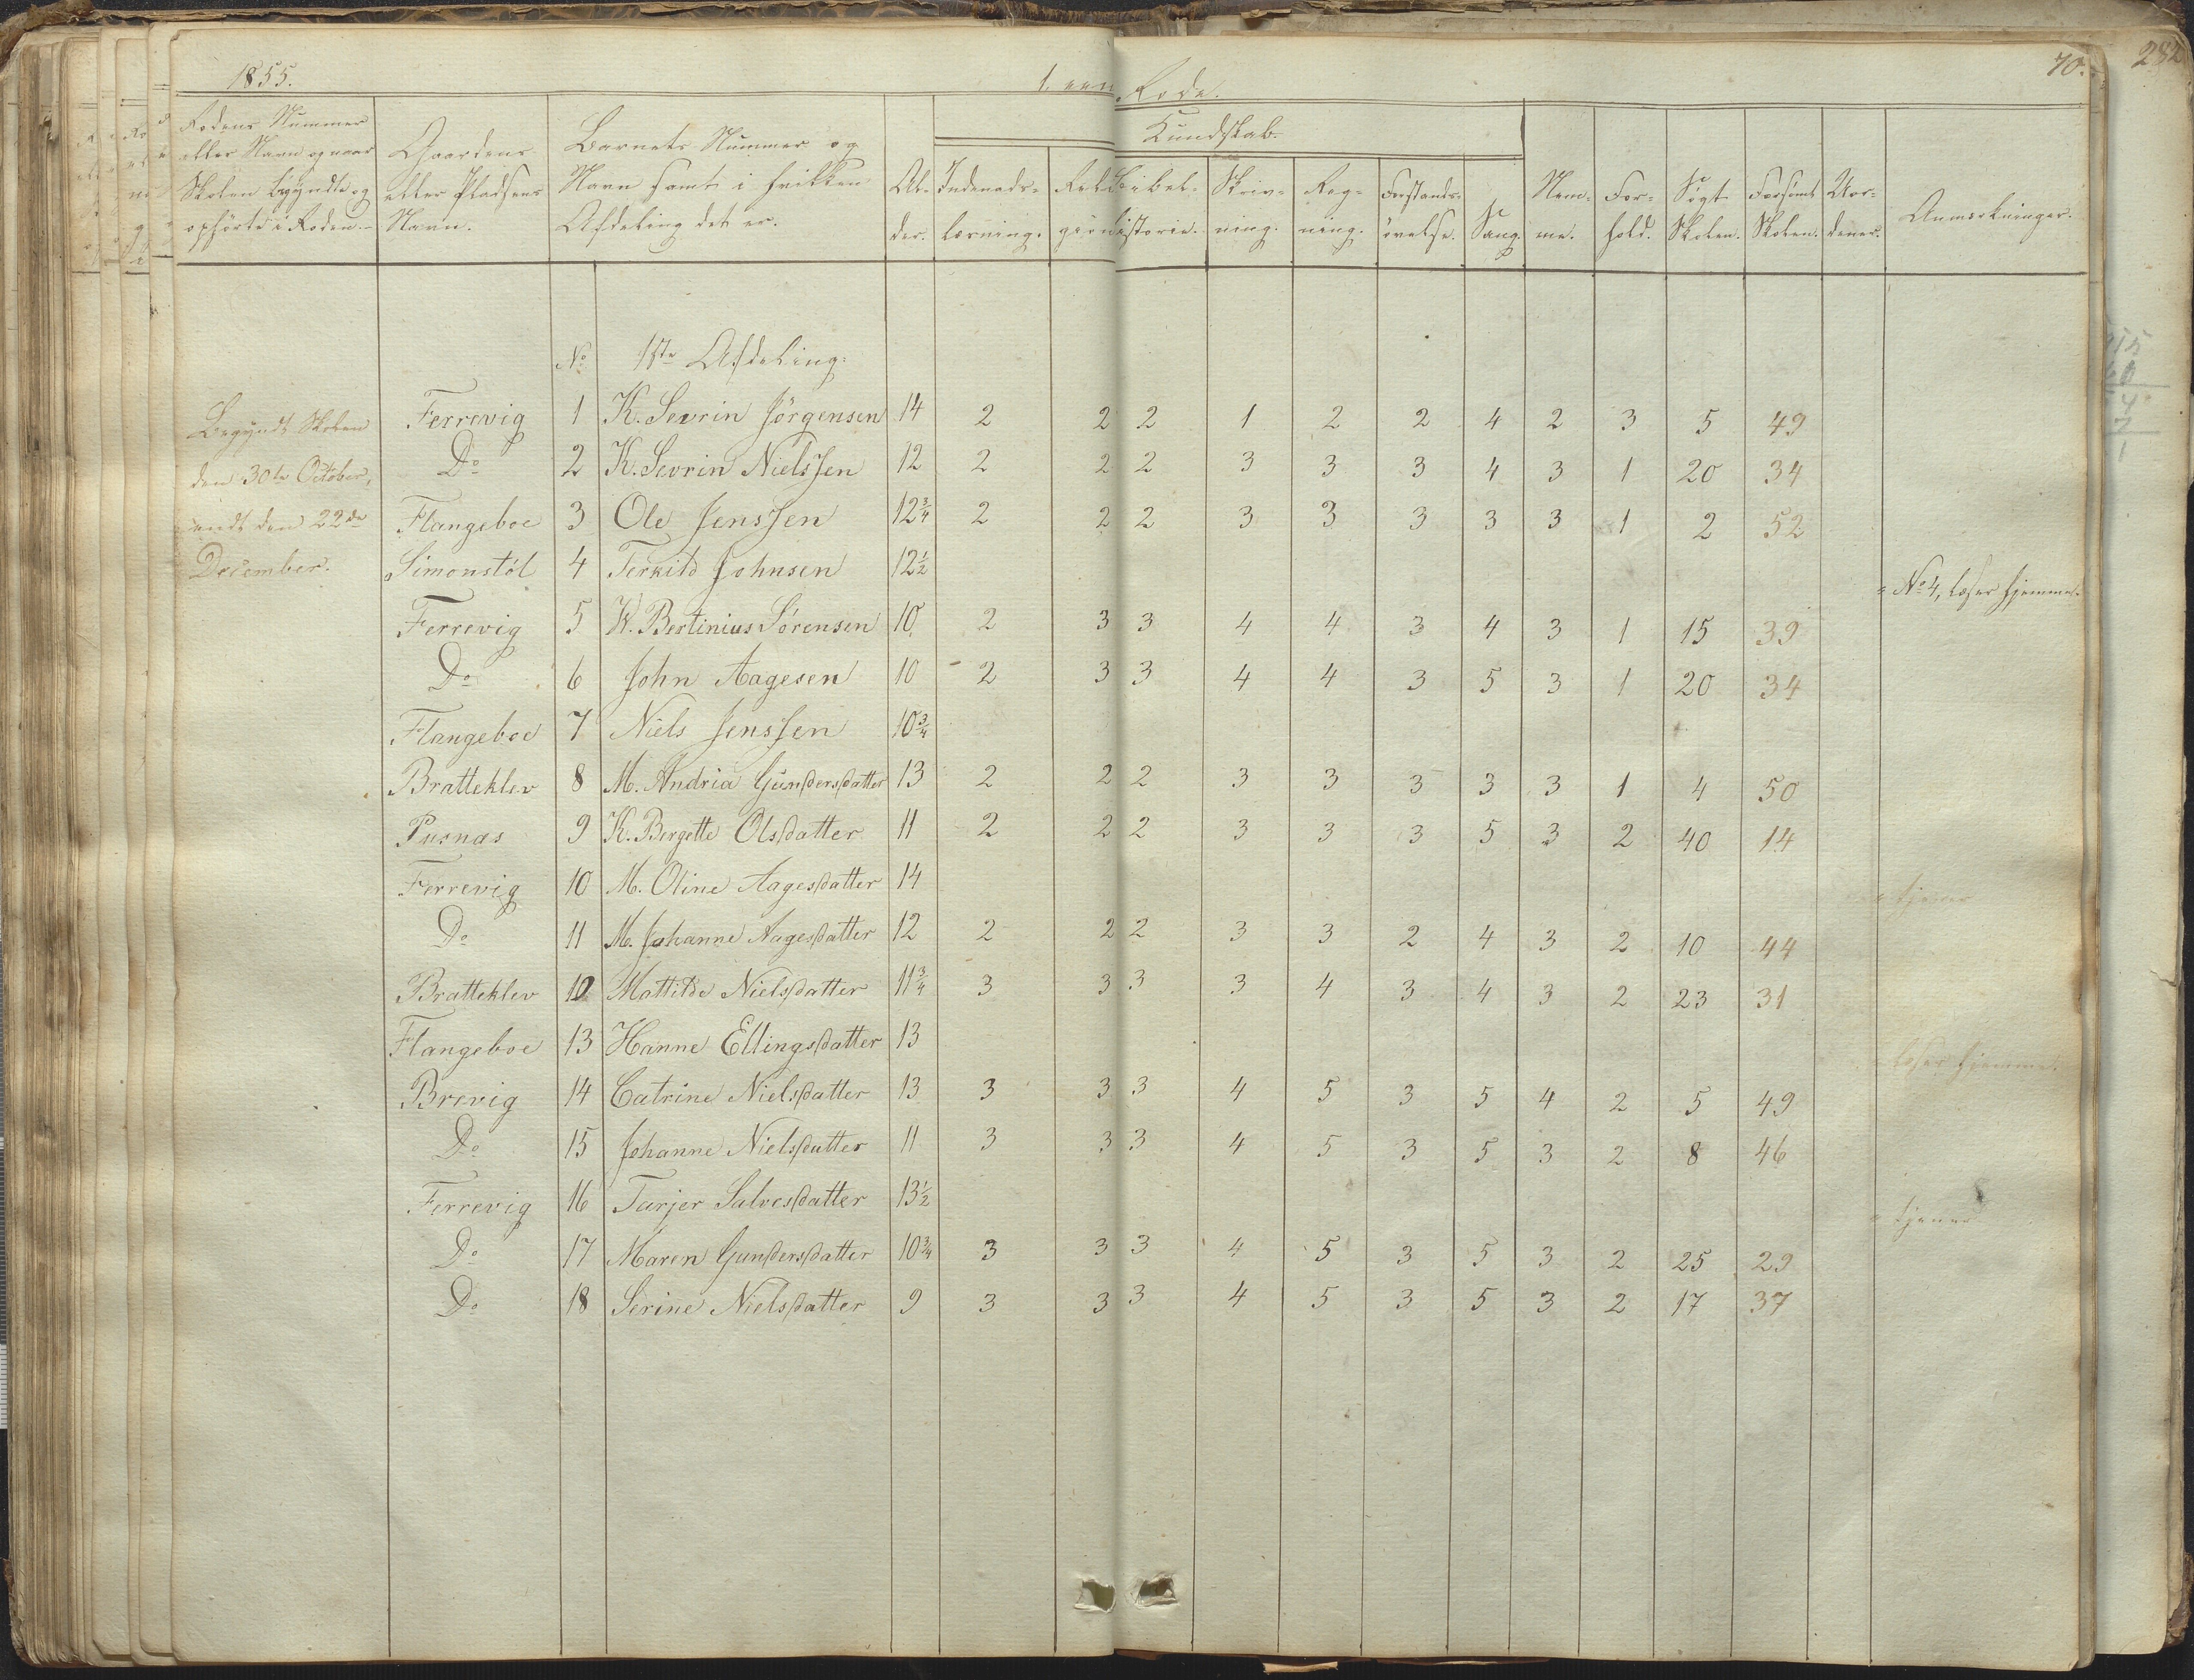 1855. 1. een Rode. 70. 282
Kundskab.
Rodens Nummer eller Navn og naar Skolen begyndte og ophörte i Roden. Gaardens eller Pladsens Navn. Barnets Nummer og Navn samt i hvilken Afdeling det er. Al-der. Indenads-læsning. Reli-giön Bibel-historie. Skriv-ning. Reg-ning. Forstands-övelse. Sang. Nem-me. For-hold. Sögt Skolen. Forsömt Skolen. Uor-dener. Anmærkninger.
No 1ste Afdeling:
Begyndt Skolen Ferrevig 1 K. Sevrin Jörgensen 14 2 2 2 1 2 2 4 2 3 5 49
den 30te October, Do 2 K. Sevrin Nielssen 12 2 2 2 3 3 3 4 3 1 20 34
endt den 22de Flangeboe 3 Ole Jenssen 12 3/4 2 2 2 3 3 3 3 3 1 2 52
December. Simonstöl 4 Terkild Johnsen 12 1/2 = No 4, læser hjemme.
Ferrevig 5 K. Bertinius Sörensen 10 2 3 3 4 4 3 4 3 1 15 39
Do 6 John Aagesen 10 2 3 3 4 4 3 5 3 1 20 34
Flangeboe 7 Niels Jenssen 10 3/4
Bratteklev 8 M. Andria Gundersdatter 13 2 2 2 3 3 3 3 3 1 4 50
Pusnæs 9 K. Bergette Olsdatter 11 2 2 2 3 3 3 5 3 2 40 14
Ferrevig 10 M. Oline Aagesdatter 14 = tjener
Do 11 M. Johanne Aagesdatter 12 2 2 2 3 3 2 4 3 2 10 44
Bratteklev 12 Mattilde Nielsdatter 11 3/4 3 3 3 3 4 3 4 3 2 23 31
Flangeboe 13 Hanne Ellingsdatter 13 = læser hjemme.
Brevig 14 Catrine Nielsdatter 13 3 3 3 4 5 3 5 4 2 5 49
Do 15 Johanne Nielsdatter 11 3 3 3 4 5 3 5 3 2 8 46
Ferrevig 16 Tarjer Salvesdatter 13 1/2 = tjener
Do 17 Maren Gundersdatter 10 3/4 3 3 3 4 5 3 5 3 2 25 29
Do 18 Serine Nielsdatter 9 3 3 3 4 5 3 5 3 2 17 37